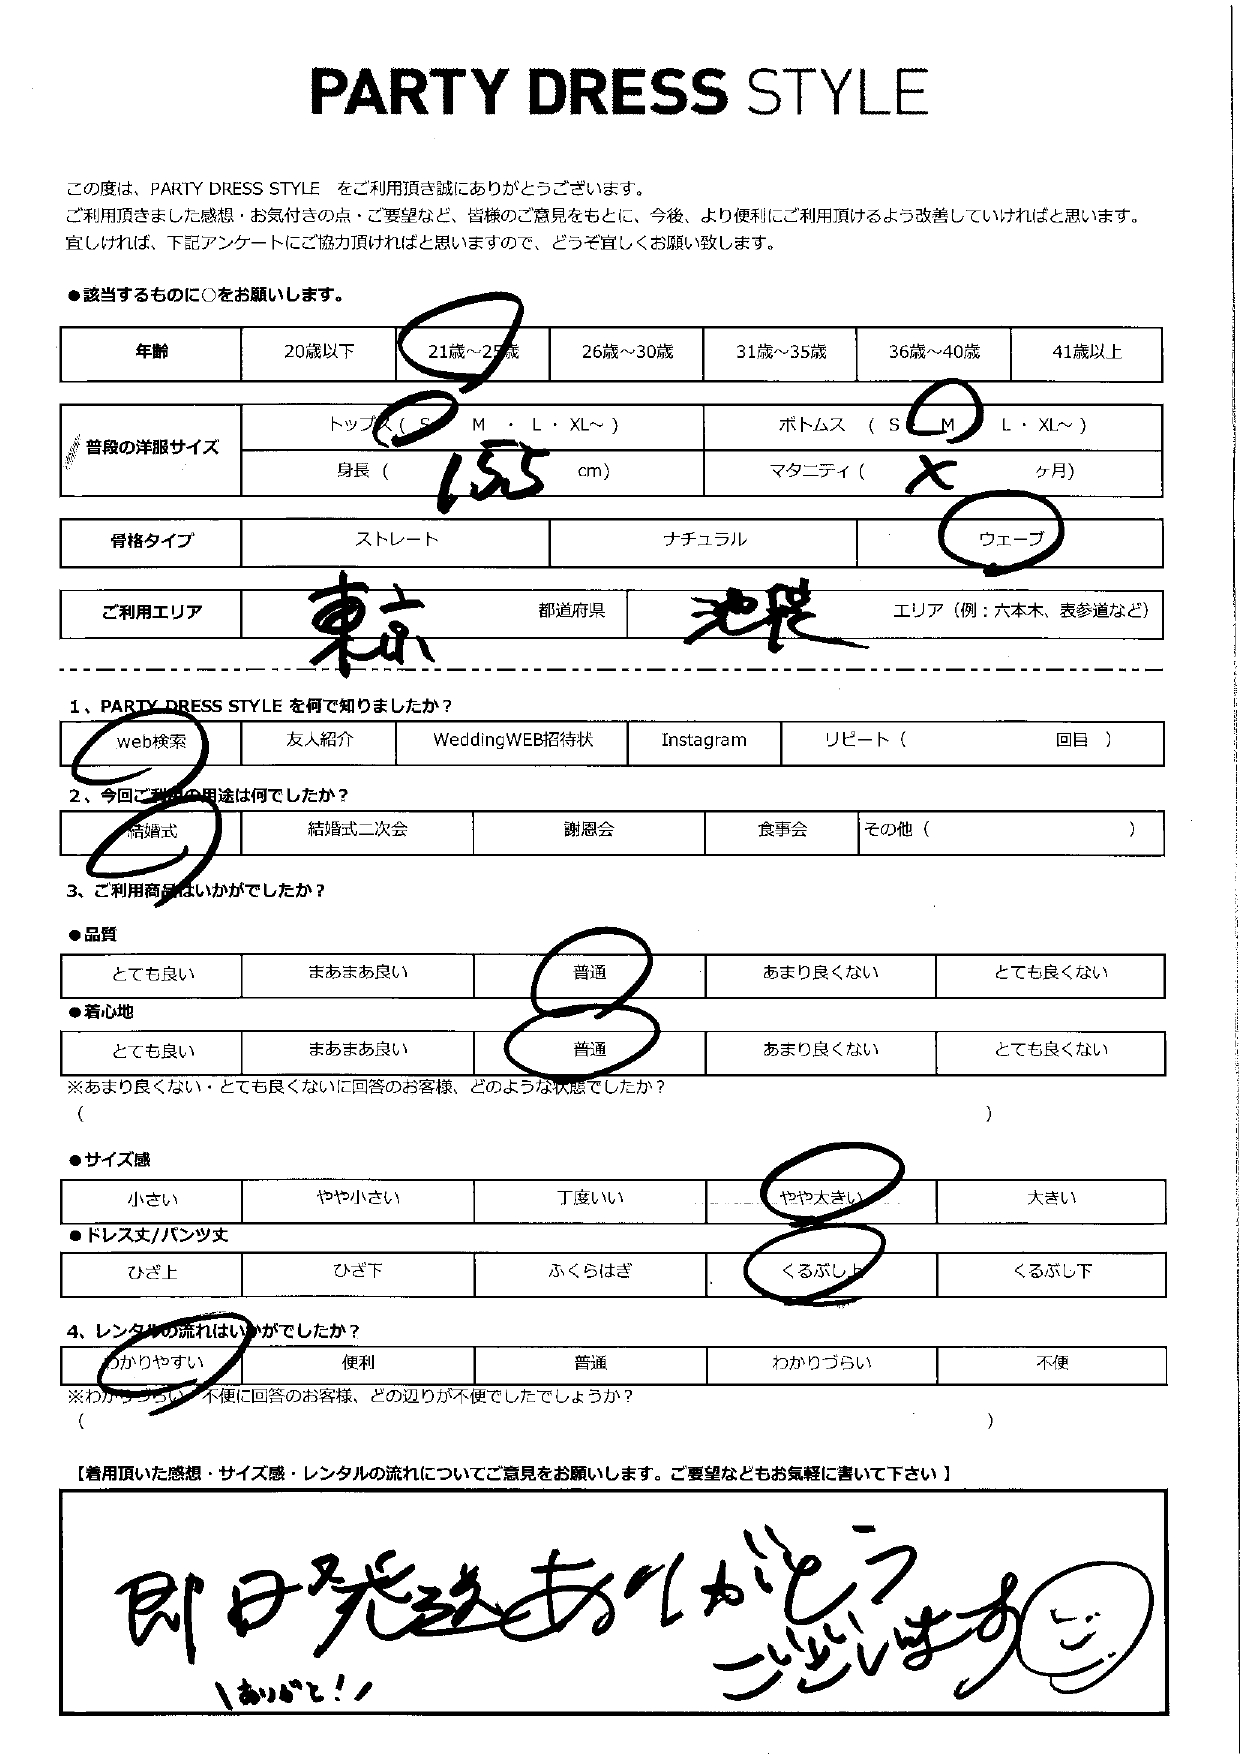 PARTY DRESS STYLE
この度は、PARTY DRESS STYLE をご利用頂き誠にありがとうございます。
ご利用頂きました感想・お気付きの点・ご要望など、皆様のご意見をもとに、今後、より便利にご利用頂けるよう改善していければと思います。
宜しければ、下記アンケートにご協力頂ければと思いますので、どうぞ宜しくお願い致します。
●該当するものに○をお願いします。
年齢 20歳以下 21歳～25歳 26歳～30歳 31歳～35歳 36歳～40歳 41歳以上
普段の洋服サイズ トップス ( S ・ M ・ L ・ XL～ ) ボトムス ( S ・ M ・ L ・ XL～ )
身長 ( 155 cm) マタニティ ( × ヶ月)
骨格タイプ ストレート ナチュラル ウェーブ
ご利用エリア 東京 都道府県 池袋 エリア（例：六本木、表参道など）
1、PARTY DRESS STYLE を何で知りましたか？
web検索 友人紹介 WeddingWEB招待状 Instagram リピート（ 回目 ）
2、今回ご利用の用途は何でしたか？
結婚式 結婚式二次会 謝恩会 食事会 その他（ ）
3、ご利用商品はいかがでしたか？
●品質
とても良い まあまあ良い 普通 あまり良くない とても良くない
●着心地
とても良い まあまあ良い 普通 あまり良くない とても良くない
※あまり良くない・とても良くないに回答のお客様、どのような状態でしたか？
（ ）
●サイズ感
小さい やや小さい 丁度いい やや大きい 大きい
●ドレス丈/パンツ丈
ひざ上 ひざ下 ふくらはぎ くるぶし上 くるぶし下
4、レンタルの流れはいかがでしたか？
わかりやすい 便利 普通 わかりづらい 不便
※わかりづらい・不便に回答のお客様、どの辺りが不便でしたでしょうか？
（ ）
【着用頂いた感想・サイズ感・レンタルの流れについてご意見をお願いします。ご要望などもお気軽に書いて下さい】
即日発送ありがとう
ございます
\ありがと!/